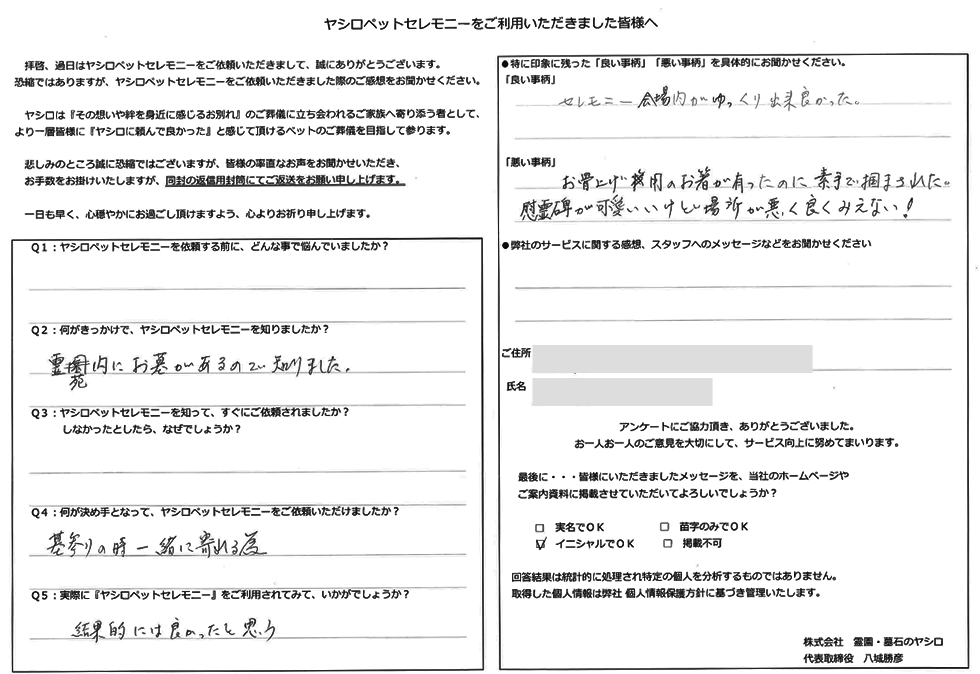 ヤシロペットセレモニーをご利用いただきました皆様へ
拝啓、過日はヤシロペットセレモニーをご依頼いただきまして、誠にありがとうございます。
恐縮ではありますが、ヤシロペットセレモニーをご依頼いただきました際のご感想をお聞かせください。
ヤシロは『その想いや絆を身近に感じるお別れ』のご葬儀に立ち会われるご家族へ寄り添う者として、
より一層皆様に『ヤシロに頼んで良かった』と感じて頂けるペットのご葬儀を目指して参ります。
悲しみのところ誠に恐縮ではございますが、皆様の率直なお声をお聞かせいただき、
お手数をお掛けいたしますが、同封の返信用封筒にてご返送をお願い申し上げます。
一日も早く、心穏やかにお過ごし頂けますよう、心よりお祈り申し上げます。
Q1：ヤシロペットセレモニーを依頼する前に、どんな事で悩んでいましたか？
Q2：何がきっかけで、ヤシロペットセレモニーを知りましたか？
霊苑内にお墓があるので知りました。
Q3：ヤシロペットセレモニーを知って、すぐにご依頼されましたか？
しなかったとしたら、なぜでしょうか？
Q4：何が決め手となって、ヤシロペットセレモニーをご依頼いただけましたか？
墓参りの時一緒に寄れる為
Q5：実際に『ヤシロペットセレモニー』をご利用されてみて、いかがでしょうか？
結果的には良かったと思う
●特に印象に残った「良い事柄」「悪い事柄」を具体的にお聞かせください。
「良い事柄」
セレモニー会場内がゆっくり出来良かった。
「悪い事柄」
お骨上げ 用のお箸が有ったのに素手で掴まされた。
慰霊碑が可愛いいけど場所が悪く良くみえない！
●弊社のサービスに関する感想、スタッフへのメッセージなどをお聞かせください
ご住所
氏名
アンケートにご協力頂き、ありがとうございました。
お一人お一人のご意見を大切にして、サービス向上に努めてまいります。
最後に・・・皆様にいただきましたメッセージを、当社のホームページや
ご案内資料に掲載させていただいてよろしいでしょうか？
□ 実名でOK □ 苗字のみでOK
☑ イニシャルでOK □ 掲載不可
回答結果は統計的に処理され特定の個人を分析するものではありません。
取得した個人情報は弊社 個人情報保護方針に基づき管理いたします。
株式会社 霊園・墓石のヤシロ
代表取締役 八城勝彦